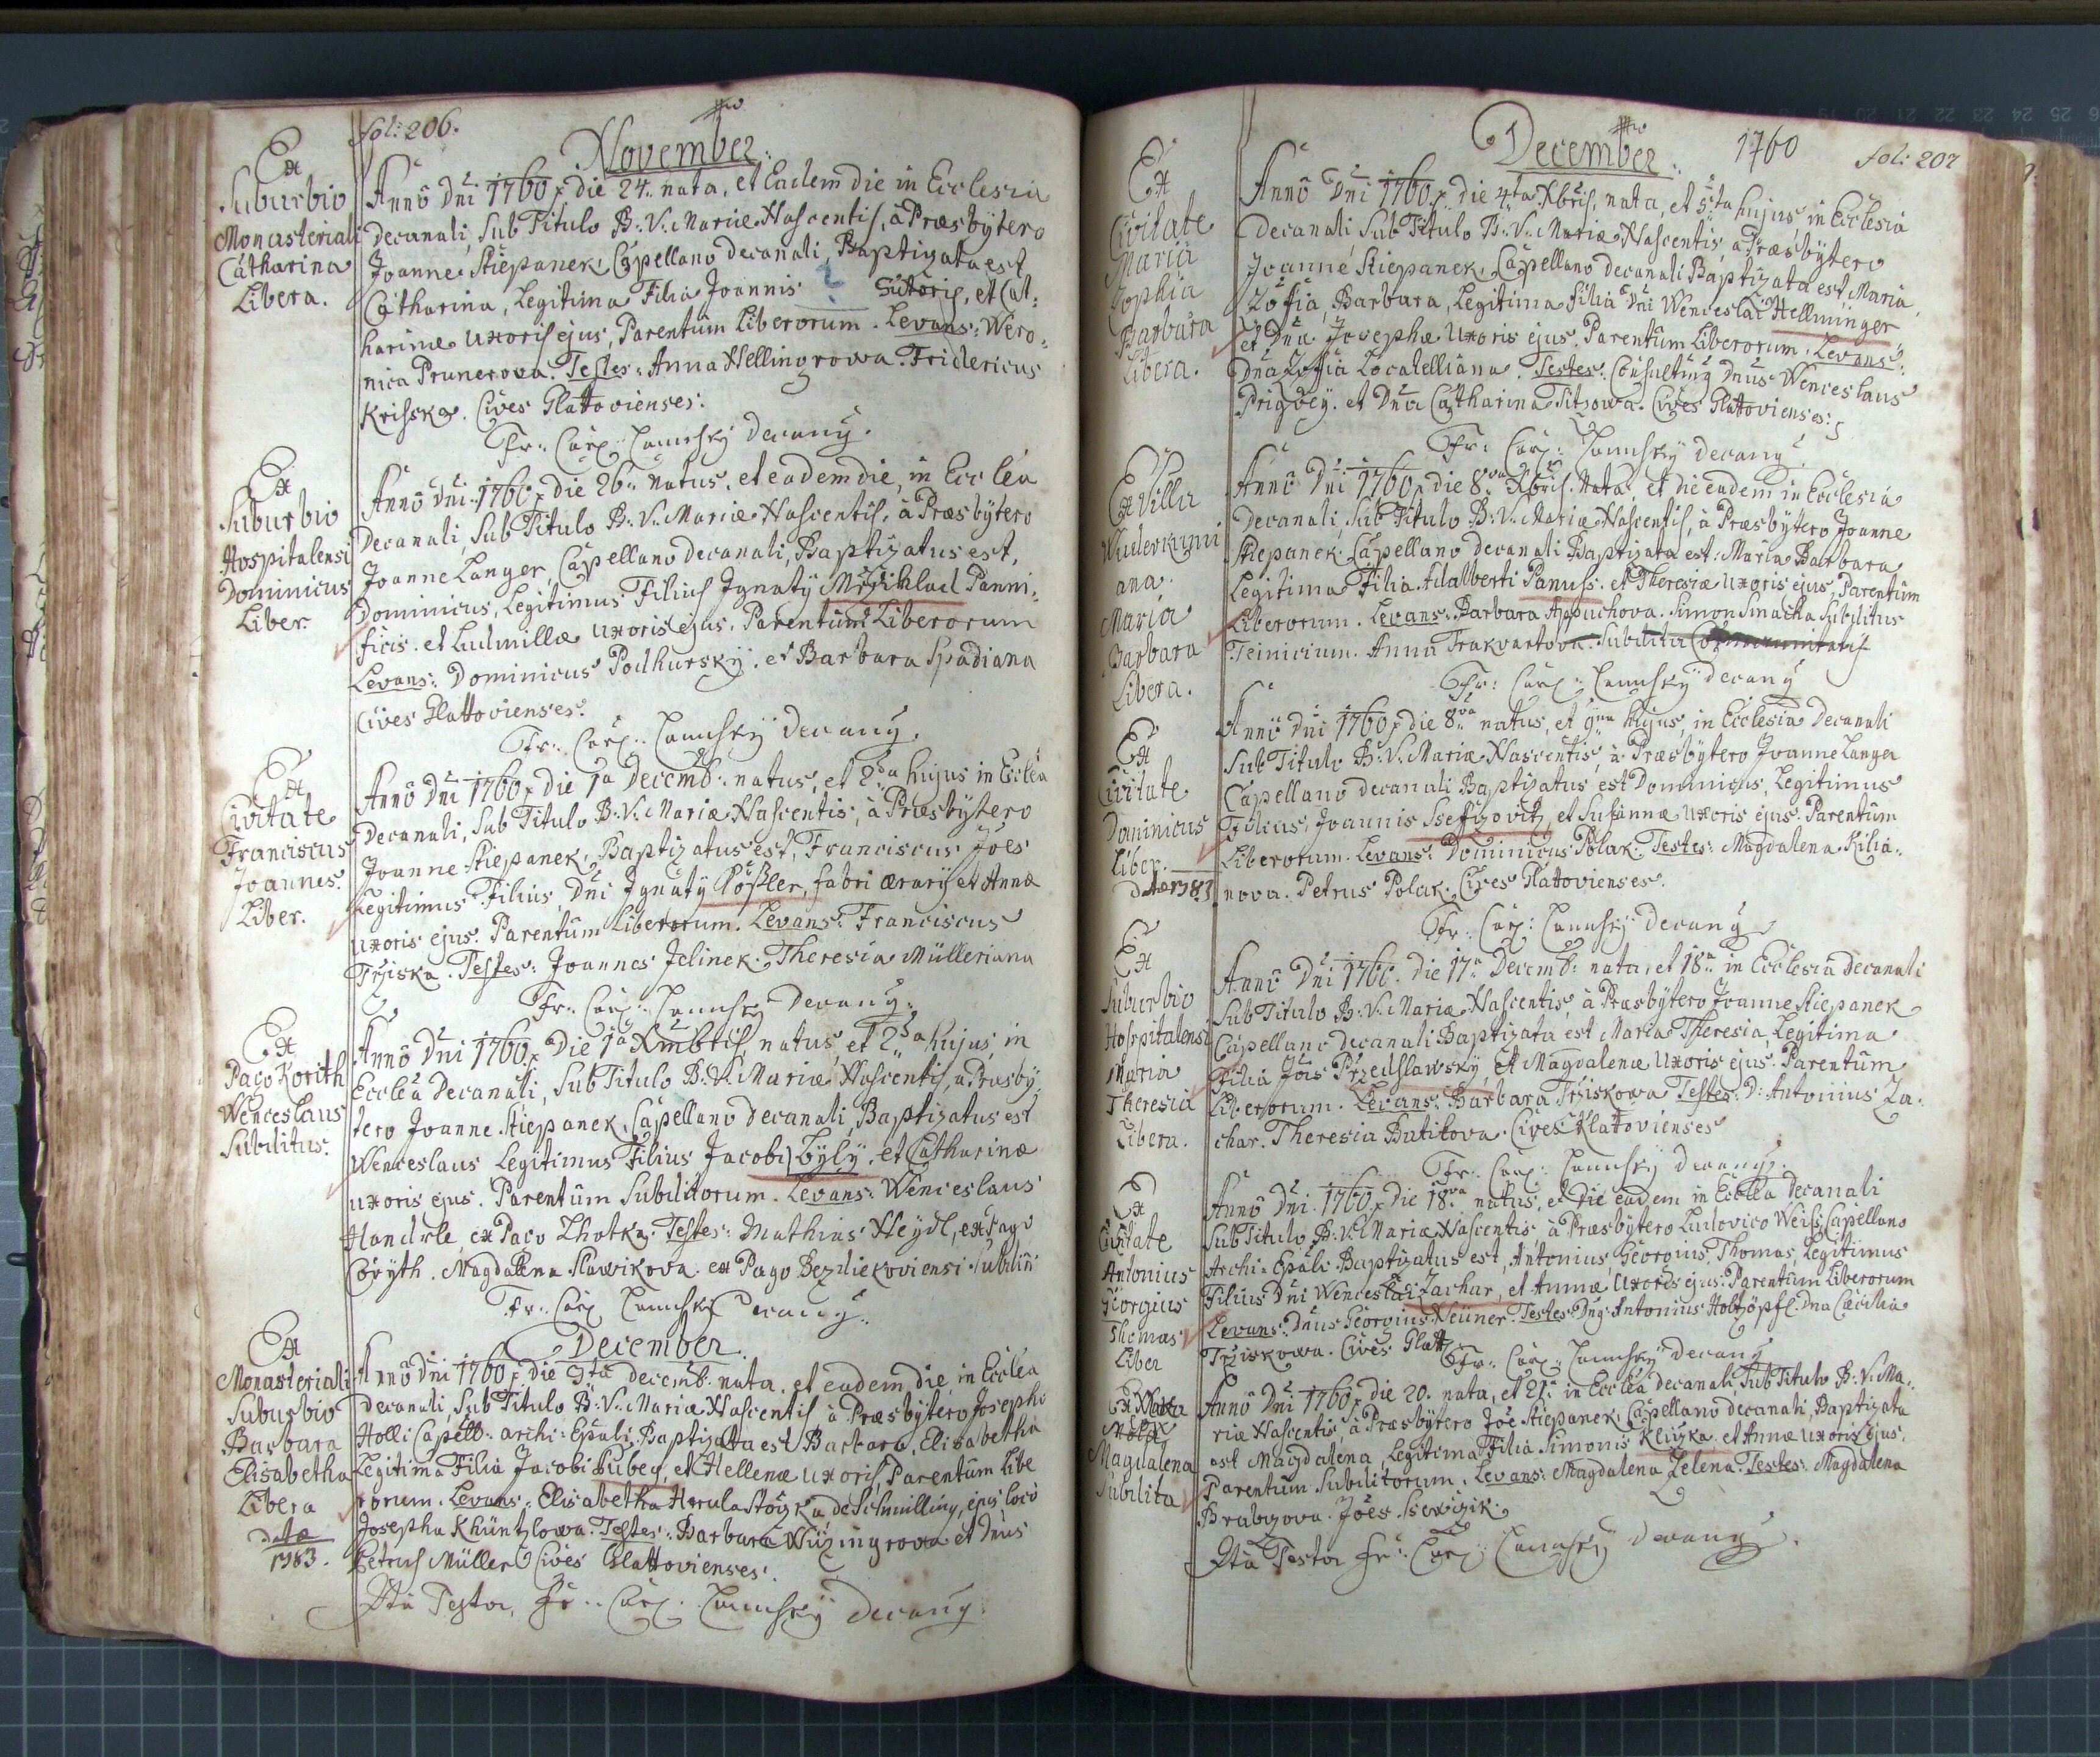 fol: 206.
November
Ex
Suburbio
Monasteriali
Catharina
Libera.
Anno Dni 1760 die 24. nata, et Eadem die in Ecclesia
Decanali, Sub Titulo B: V: Mariæ Nascentis, à Præsbÿtero
Joanne Stiepanek, Capellano decanali, Baptizata est
Catharina, Legitima Filia Joannis ? Sutoris, et Cat:
harinæ uxoris ejus, Parentum Liberorum. Levans: Wero:
nica Prunerova. Testes: Anna Hellingrowa. Fridericus
Krisska. Cives Glattovienses:
Fr: Carl: Decang.
Ex
Suburbio
Hospitalensi
Dominicus
Liber
Anno Dni 1760 die 26. natus, et eadem die, in Ecclea
Decanali, Sub Titulo B: V: Mariæ Nascentis, à Præsbÿtero
Joanne Langer, Capellano decanali, Baptizatus est,
Dominicus, Legitimus Filius Ignatÿ Panni:
ficis. et Ludmillæ uxoris ejus, Parentum Liberorum
Levans: Dominicus Podhurskÿ. et Barbara Spadiana
Cives Glattovienses.
Fr: Carl: Decang.
Ex
Civitate
Franciscus
Joannes.
Liber.
Anno Dni 1760 die 1a Decemb: natus, et 2da hujus in Ecclea
Decanali, Sub Titulo B: V: Mariæ Nascentis, à Præsbÿtero
Joanne Stiepanek, Baptizatus est, Franciscus Joes
Legitimus Filius, Dni Ignatÿ Rößler, fabri ærarÿ et Annæ
uxoris ejus. Parentum Liberorum. Levans: Franciscus
Trziska. Testes: Joannes Jelinek. Theresia Mülleriana
Fr: Carl: Decang.
Ex
Pago Korith
Wenceslaus
Subditus.
Anno Dni 1760 Die 1a Xmbris, natus, et 2da hujus, in
Ecclea Decanali, Sub Titulo B: V: Mariæ Nascentis, a Præsbÿ:
tero Joanne Stiepanek, Capellano decanali, Baptizatus est
Wenceslaus Legitimus Filius Jacobi Bylÿ, et Catharinæ
uxoris ejus. Parentum Subditorum. Levans: Wenceslaus
Handrle ex Pago Lhotka. Testes: Mathias Heÿdl, ex Pago
Corÿth. Magdalena Slawikova. ex Pago Bezdiekoviensi Subditi
Fr: Carl: Decang.
December
Ex
Monasteriali
Suburbio
Barbara
Elisabetha
Libera
data
1783.
Anno Dni 1760 die 3tia decemb. nata, et eadem die, in Ecclea
decanali, Sub Titulo B: V: Mariæ Nascentis, à Præsbÿtero Josepho
Holli Capell: archi: Epali, Baptizata est Barbara, Elisabetha
Legitima Filia Jacobi et Hellenæ uxoris, Parentum Libe
rorum. Levans: Elisabetha de Schmilling, ejus loco
Josepha Khüntzlowa. Testes: Barbara et Dnus
Petrus Müller Cives Glattovienses:
Ita Testor, Fr: Carl: Decang.
December
1760
fol: 207
Ex
Civitate
Maria
Sophia
Barbara
Libera.
Anno Dni 1760 die 4ta Xbris, nata, et 5ta hujus, in Ecclesia
Decanali Sub Titulo B: V: Mariæ Nascentis, à Præsbÿtero
Joanne Stiepanek, Capellano decanali Baptizata est, Maria,
Zofia, Barbara, Legitima Filia Dni Wenceslai Hellminger
et Dnæ Josephæ uxoris ejus. Parentum Liberorum. Levans:
Dna Zofia Locatelliana. Testes: Consultus Dnus Wenceslaus
et Dna Catharina Titzowa. Cives Glattovienses:
Fr: Carl: Decang.
Ex Villa
ana.
Maria
Barbara
Libera.
Anno Dni 1760 die 8va Xbris. Nata, et die eadem in Ecclesia
Decanali, Sub Titulo B: V: Mariæ Nascentis, à Præsbÿtero Joanne
Stiepanek. Capellano decanali Baptizata est: Maria Barbara
Legitima Filia Adalberti Panuss. et Theresiæ uxoris ejus, Parentum
Liberorum. Levans: Barbara Appuchova. Simon Smacha Subditus
Teinicium. Anna Trakvartova. Subdita
Fr: Carl: Decang
Ex
Civitate
Dominicus
Liber.
1783
Anno Dni 1760 die 8va natus, et 9na hujus, in Ecclesia Decanali
Sub Titulo B: V: Mariæ Nascentis, à Præsbÿtero Joanne Langer
Capellano decanali Baptizatus est Dominicus, Legitimus
Filius, Joannis Ssefzovitz, et Susannæ uxoris ejus. Parentum
Liberorum. Levans: Dominicus Polak. Testes: Magdalena Kilia:
nova. Petrus Polak. Cives Glatovienses.
Fr: Carl: Decang
Ex
Suburbio
Hospitalensi
Maria
Theresia
Libera.
Anno Dni 1760. die 17a Decemb: nata, et 18a in Ecclesia Decanali
Sub Titulo B: V: Mariæ Nascentis, à Præsbÿtero Joanne Stiepanek
Capellano decanali Baptizata est Maria Theresia, Legitima
Filia Jois Przedslawskÿ, Et Magdalenæ uxoris ejus. Parentum
Liberorum. Levans: Barbara Trziskowa Testes: D: Antonius Za:
char. Theresia Butilova. Cives Klatovienses
Fr: Carl: Decang.
Ex
Civitate
Antonius
Georgius
Thomas
Liber
Anno Dni. 1760. Die 18va natus, et Die eadem in Ecclea Decanali
Sub Titulo B: V: Mariæ Nascentis, à Præsbÿtero Ludovico Weiss Capellano
Archi: Epali Baptizatus est, Antonius Georgius, Thomas, Legitimus
Filius Dni Wenceslai Zachar, et Annæ uxoris ejus. Parentum Liberorum
Levans: Dnus Georgius Neuner. Testes Dng Antonius Holtzöpfl. Dna Cæcilia
Trziskowa. Cives Glatt
Fr: Carl: Decang
Magdalena
Subdita
Anno Dni 1760 die 20. nata, et 21. in Ecclea decanali, Sub Titulo B: V: Ma:
riæ Nascentis, à Præsbÿtero Joe Stiepanek, Capellano decanali, Baptizata
est Magdalena, Legitima Filia Simonis Kluzka. et Annæ uxoris ejus.
Parentum Subditorum. Levans: Magdalena Zelena. Testes: Magdalena
Brabzova. Joes Ssewczik.
Ita Testor Fr: Carl: Decang.